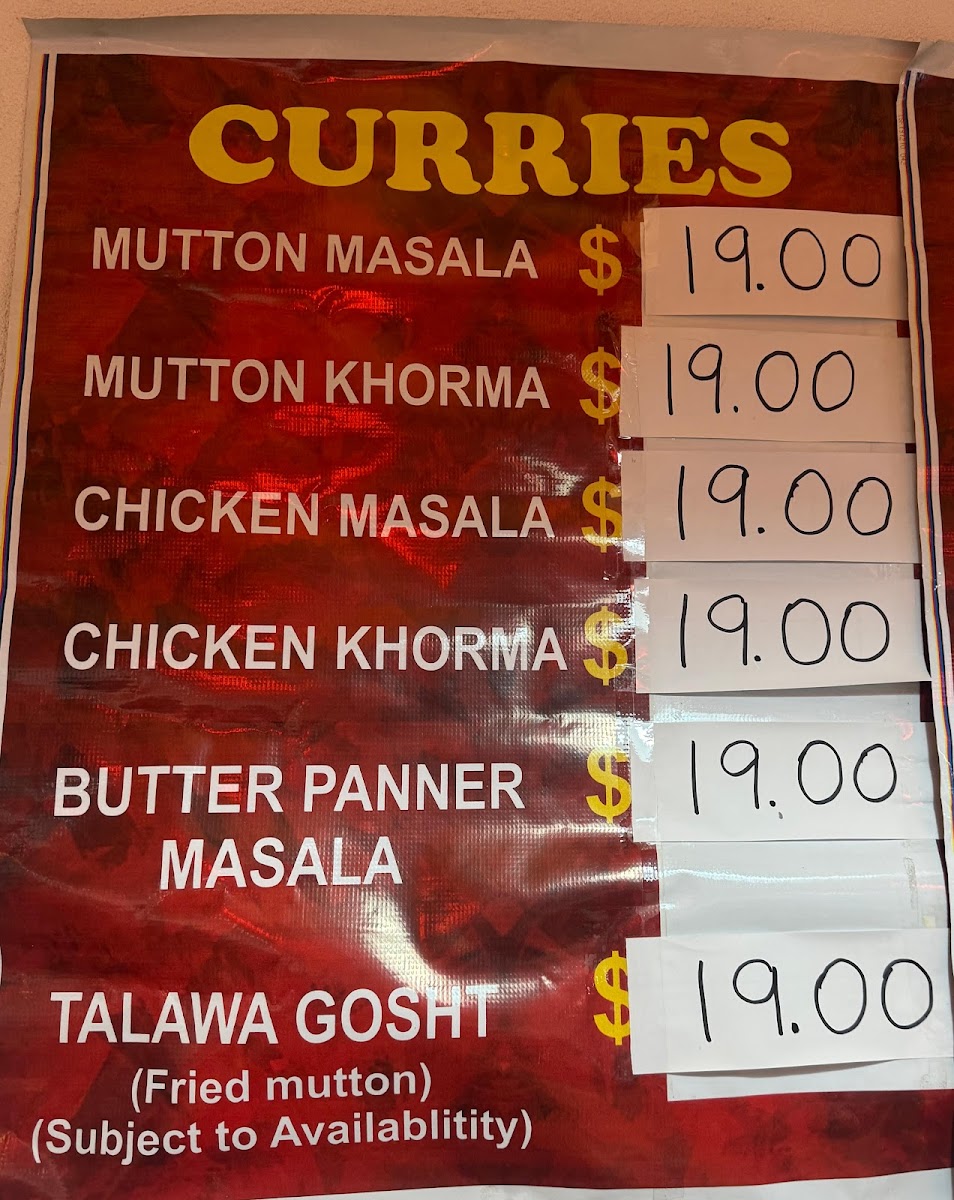 CURRIES
MUTTON MASALA $ 19.00
MUTTON KHORMA $ 19.00
CHICKEN MASALA $ 19.00
CHICKEN KHORMA $ 19.00
BUTTER PANNER $ 19.00
MASALA
TALAWA GOSHT $ 19.00
(Fried mutton)
(Subject to Availablitity)